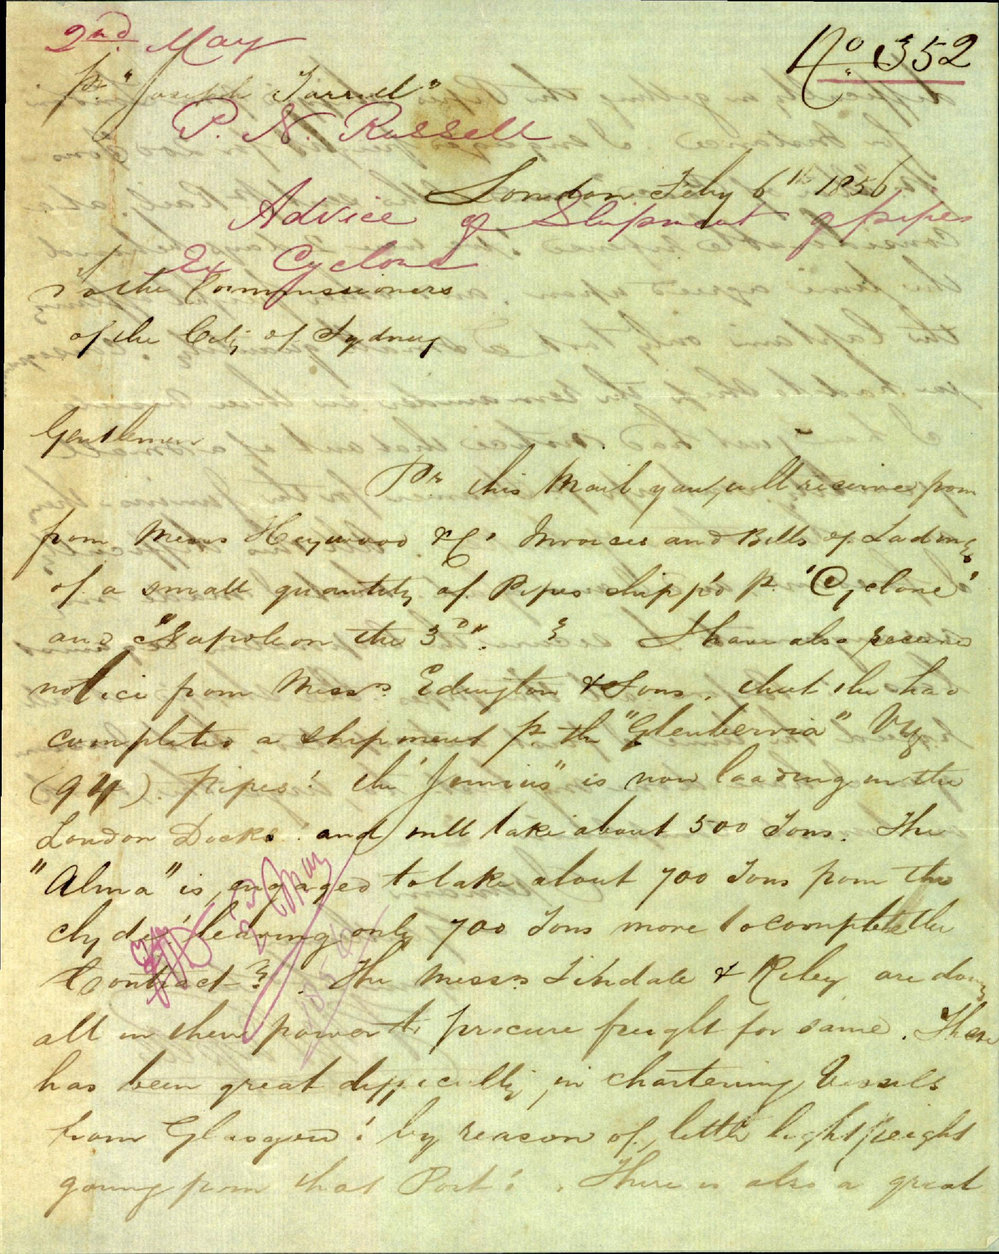 2nd May
No 352
pr "Joseph Tarratt"
P. N. Russell
London Feby 6th 1856
Advice of Shipment of pipes
Ex Cyclone
To the Commissioners
of the City of Sydney
Gentlemen
Pr this Mail you will receive from
from Messrs Heywood & Co Invoices and Bills of Lading
of a small quantity of Pipes shipp'd p. 'Cyclone'
and "Napoleon the 3rd". I have also received
notice from Messrs Edington & Sons, that the had
completed a shipment p the "Glenbervia" Viz
(94) pipes: the "Junius" is now loading in the
London Docks. and will take about 500 Tons. The
"Alma" is engaged to take about 700 Tons from the
Clyde, leaving only 700 Tons more to complete the
Contract. The Messrs Tindale & Riley are doing
all in their power to procure freight for same. There
has been great difficulty in chartering Vessels
from Glasgow: by reason of little light freight
going from that Port: There is also a great
2nd May